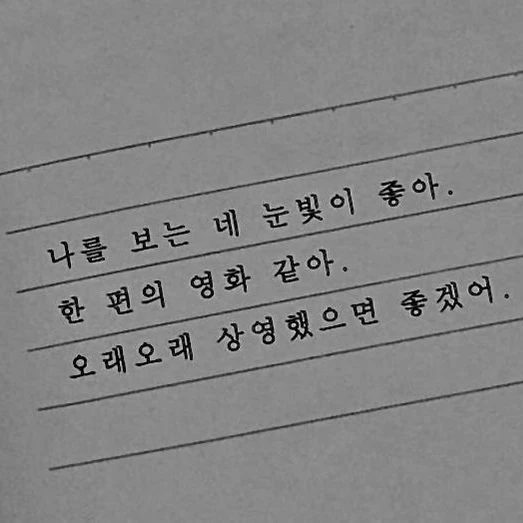 나를 보는 네 눈빛이 좋아.
한 편의 영화 같아.
오래오래 상영했으면 좋겠어.